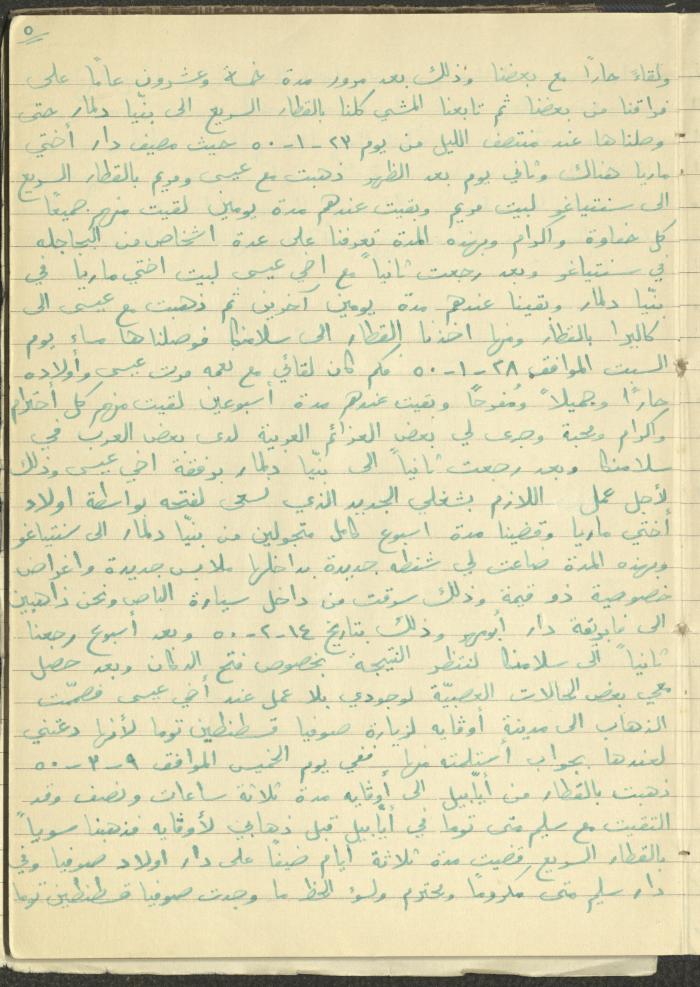 ٥
ولقاءً حاراً مع بعضنا وذلك بعد مرور مدة خمسة وعشرون عاماً على
فراقنا من بعضنا ثم تابعنا المشي كلنا بالقطار السريع الى بنّيا دلمار حتى
وصلناها عند منتصف الليل من يوم ٢٣-١-٥٠ حيث مصيف دار أختي
ماريا هناك وثاني يوم بعد الظهر ذهبت مع عيسى ومريم بالقطار السريع
الى سنتياغو لبيت مريم وبقيت عندهم مدة يومين لقيت منهم جميعاً
كل حفاوة واكرام وبهذه المدة تعرفنا على عدة اشخاص من البجاجله
في سنتياغو وبعد رجعت ثانياً مع اخي عيسى لبيت اختي ماريا في
بنّيا دلمار وبقينا عندهم مدة يومين آخرين ثم ذهبت مع عيسى الى
كاليرا بالقطار ومنها اخذنا القطار الى سلامنكا فوصلناها مساء يوم
السبت الموافق ٢٨-١-٥٠ فكم كان لقائي مع نعمه مرت عيسى وأولاده
حارًا وجميلاً ومُفرحاً وبقيت عندهم مدة أسبوعين لقيت منهم كل أحترام
واكرام ومحبة وجرى لي بعض العزائم العربية لدى بعض العرب في
سلامنكا وبعد رجعت ثانياً الى بنّيا دلمار برفقة اخي عيسى وذلك
لأجل عمل اللازم بشغلي الجديد الذي نسعى لفتحه بواسطة اولاد
أختي ماريا وقضينا مدة اسبوع كامل متجولين من بنّيا دلمار الى سنتياغو
وبهذه المدة ضاعت لي شنطه جديدة بداخلها ملابس جديدة واغراض
خصوصية ذو قيمة وذلك سرقت من داخل سيارة الباص ونحن ذاهبين
الى فابريقة دار وذلك بتاريخ ١٤-٢-٥٠ وبعد أسبوع رجعنا
ثانياً الى سلامنكا لننظر النتيجة بخصوص فتح الدكان وبعد حصل
معي بعض الحالات العصبيّة لوجودي بلا عمل عند أخي عيسى فصمّمت
الذهاب الى مدينة أوڤايه لزيارة صوفيا قسطنطين توما لأنها دعتني
لعندها بجواب أستلمته منها ففي يوم الخميس الموافق ٩-٣-٥٠
ذهبت بالقطار من أيّابيل الى أوڤايه مدة ثلاثة ساعات ونصف وقد
التقيت مع سليم متى توما في أيّابيل قبل ذهابي لأوڤايه فذهبنا سوياً
بالقطار السريع فقضيت مدة ثلاثة أيام ضيفاً على دار اولاد صوفيا وفي
دار سليم متى مكروماً ومحترم ولسؤ الحظ ما وجدت صوفيا قسطنطين توما